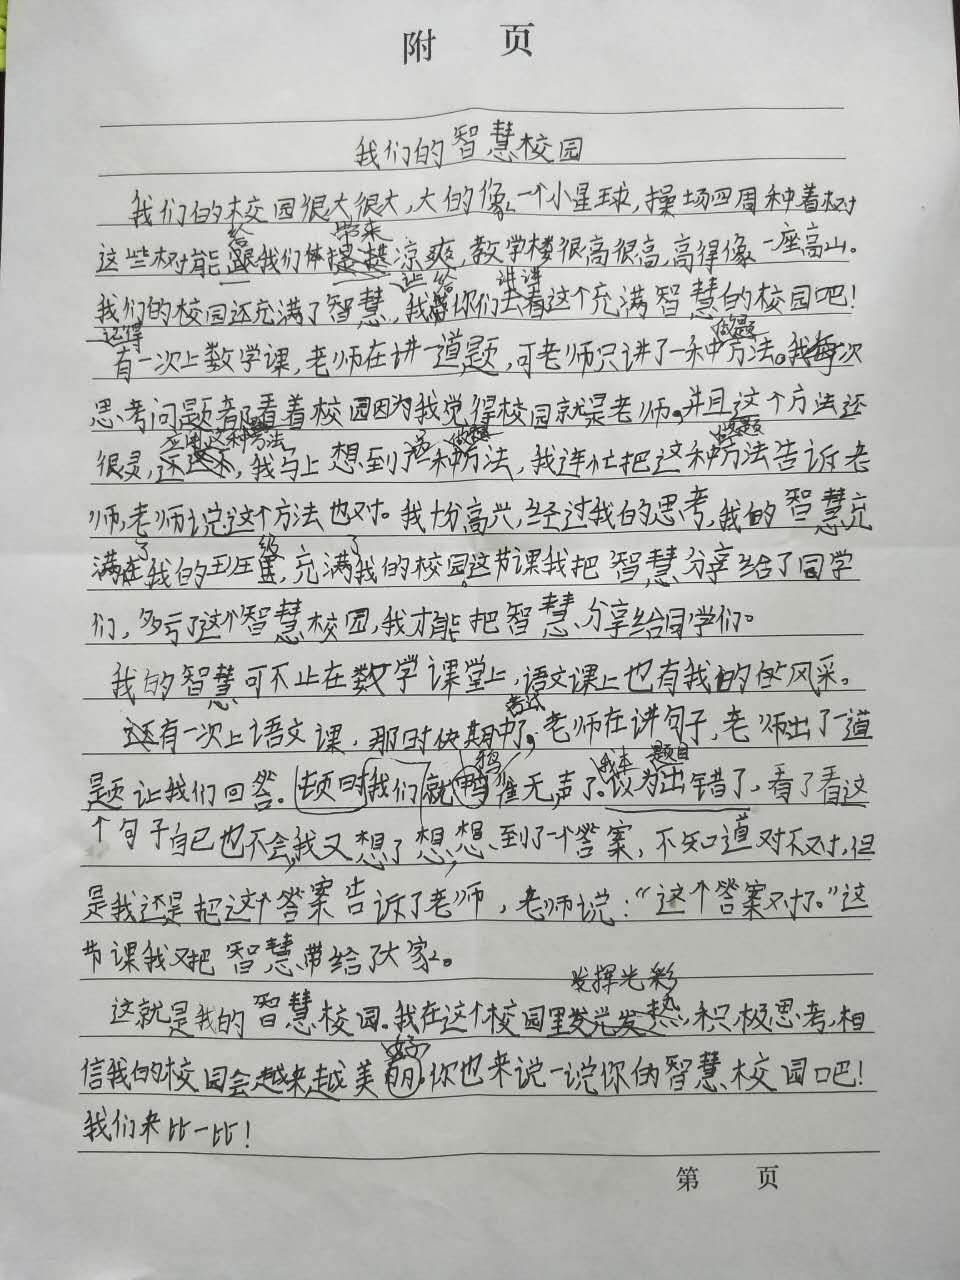 附 页
我们的智慧校园
我们的校园很大很大,大的像一个小星球,操场四周种着树
给 带来
这些树能跟我们体提供凉爽,教学楼很高很高,高得像一座高山。
让 给 讲讲
我们的校园还充满了智慧,我带你们去看这个充满智慧的校园吧!
记得 做题
有一次上数学课,老师在讲一道题,可老师只讲了一种方法。我每次
思考问题都看着校园因为我觉得校园就是老师。并且这个方法还
应用这种方法 做题 做题
很灵,还这不,我马上想到了一种方法,我连忙把这种方法告诉老
师,老师说这个方法也对。我十分高兴,经过我的思考,我的智慧充
了 级 了
满在我的班里,充满我的校园。这节课我把智慧分享给了同学
们,多亏了这个智慧校园,我才能把智慧分享给同学们。
我的智慧可不止在数学课堂上,语文课上也有我的风采。
考试
还有一次上语文课,那时快期中了。老师在讲句子,老师出了一道
鸦 题目
题让我们回答。顿时我们就鸭雀无声了。以为出错了,看了看这
个句子自己也不会,我又想了想,想到了一个答案,不知道对不对,但
是我还是把这个答案告诉了老师,老师说:“这个答案对了。”这
节课我又把智慧带给了大家。
发挥光彩
这就是我的智慧校园。我在这个校园里发光发热,积极思考,相
好
信我的校园会越来越美丽,你也来说一说你的智慧校园吧!
我们来比一比!
第 页